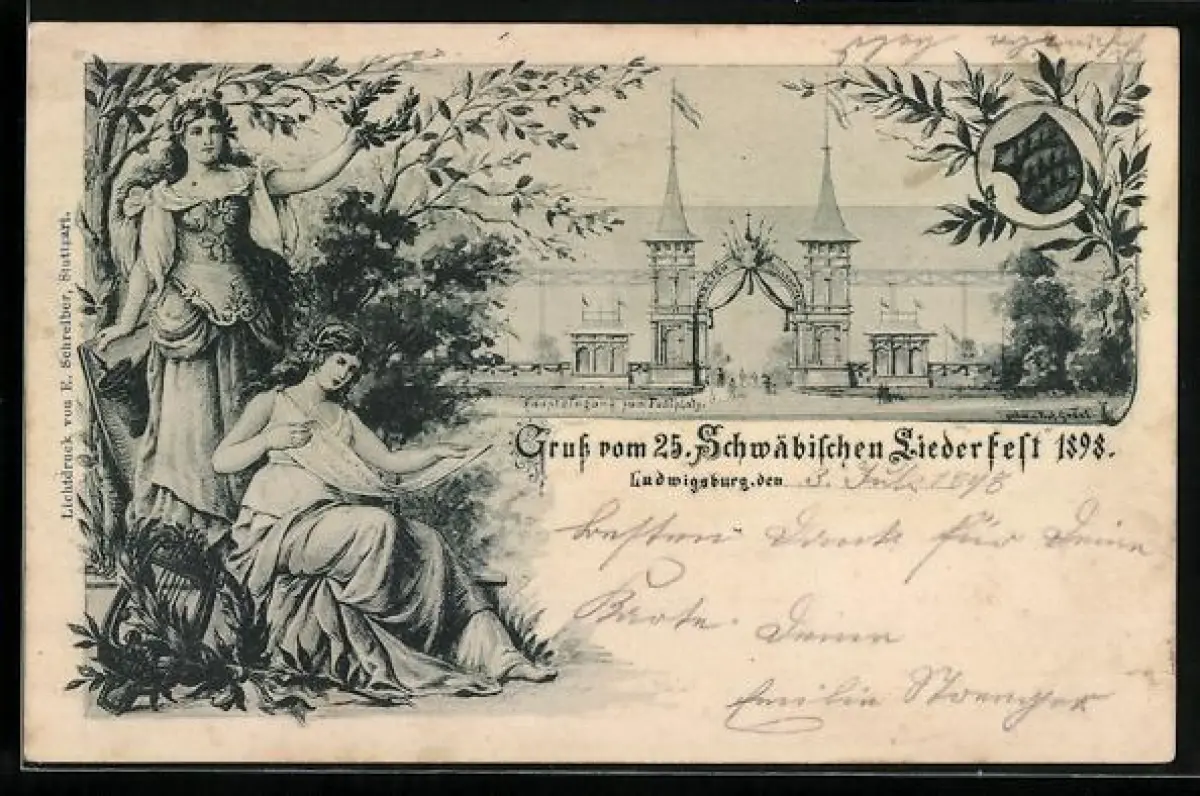 Lichtdruck von E. Schreiber, Stuttgart.
Haupteingang zum Festplatz.
Gruß vom 25. Schwäbischen Liederfest 1898.
Ludwigsburg, den 3. Juli 1898
Besten Dank für Deine
Karte. Deine
Emilie